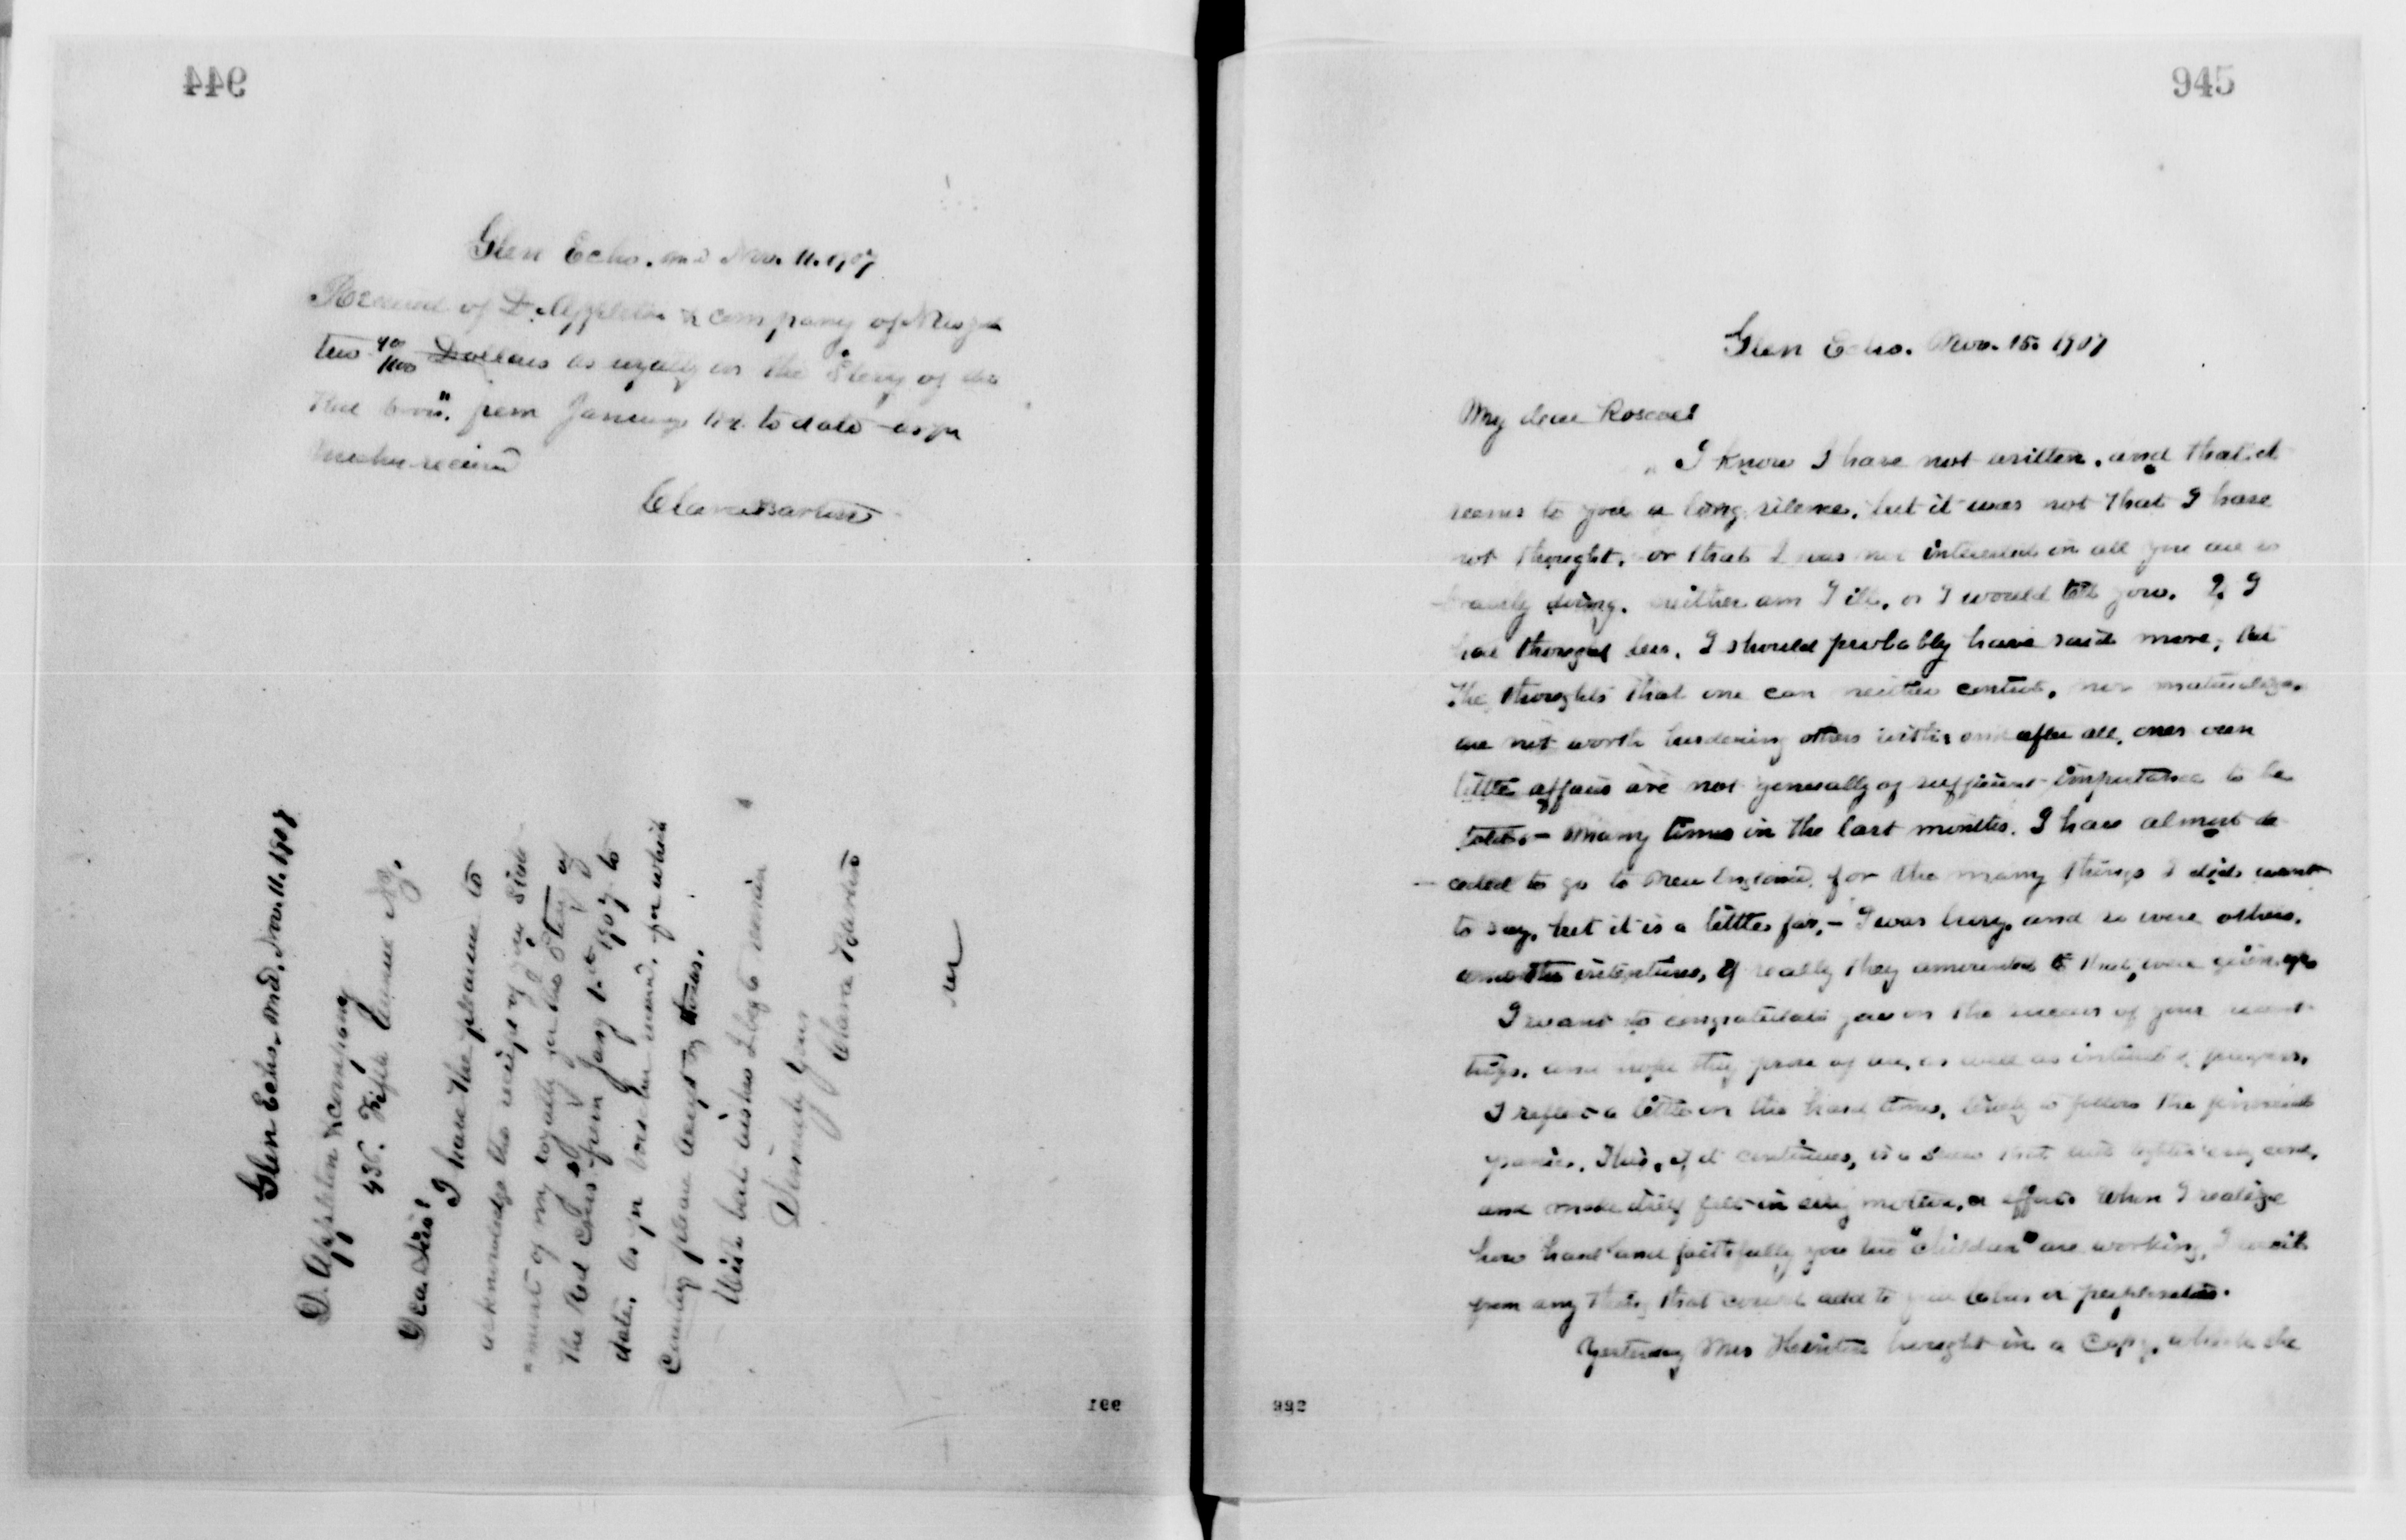 944
Glen Echo. Md Nov. 11. 1907
Received of D. Appleton & company of New York
two 40/100 Dollars as royalty on the Story of the
Red Cross". from January 1st to date - as per
voucher received
Clara Barton
Glen Echo. Md. Nov. 11. 1907
D. Appleton & company
436. Fifth Avenue NY.
Dear Sirs!
I have the pleasure to
acknowledge the receipt of your State
-ment of my royalty for the Story of
the Red Cross from Jany 1st 1907 to
date, as per voucher for which
Courtesy please accept my thanks.
With best wishes I beg to remain
Sincerely yours
Clara Barton
991
945
Glen Echo. Nov. 15. 1907
My dear Roscoe!
I know I have not written. and that it
seems to you a long silence. but it was not that I have
not thought. or that I was not interested in all you are so
bravely doing. neither am I ill. or I would tell you. If I
had thought less. I should probably have said more, but
the thoughts that one can neither control, nor materialize.
are not worth burdening others with and after all, ones own
little affairs are not generally of sufficient importance to be
told. - Many times in the last months. I have almost de
- cided to go to New England. for the many things I did want
to say, but it is a little far, - I was busy. and so were others.
and the intentions, if really they amounted to that, were given up.
I want to congratulate you on the success of your recent
and hope they prove of use, as well as interest &
I reflect a little on the hard times, likely to follow the financial
panic. This, if it continues, is a that will tighten every
and make itself felt in every motive, or effort. When I realize
how hard and faithfully you two "children" are working, I
from any thing that could add to your labors or perplexities.
Yesterday Mrs Hinton brought in a Copy, which she
992